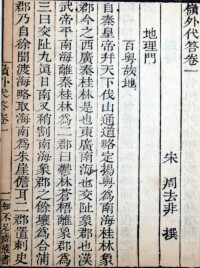 嶺外代答卷一
宋 周去非 撰
地理門
百粵故地
自秦皇帝幷天下伐山通道略定揚粵為南海桂林象
郡今之西廣秦桂林是也東廣南海也交阯象郡也漢
武帝平南海離秦桂林為二郡曰鬱林蒼梧離象郡為
三曰交阯九眞日南又稍割南海象郡之餘壤為合浦
郡乃自徐聞渡海略取海南為朱崖儋耳二郡置刺史
嶺外代答卷一
一
知不足齋叢書